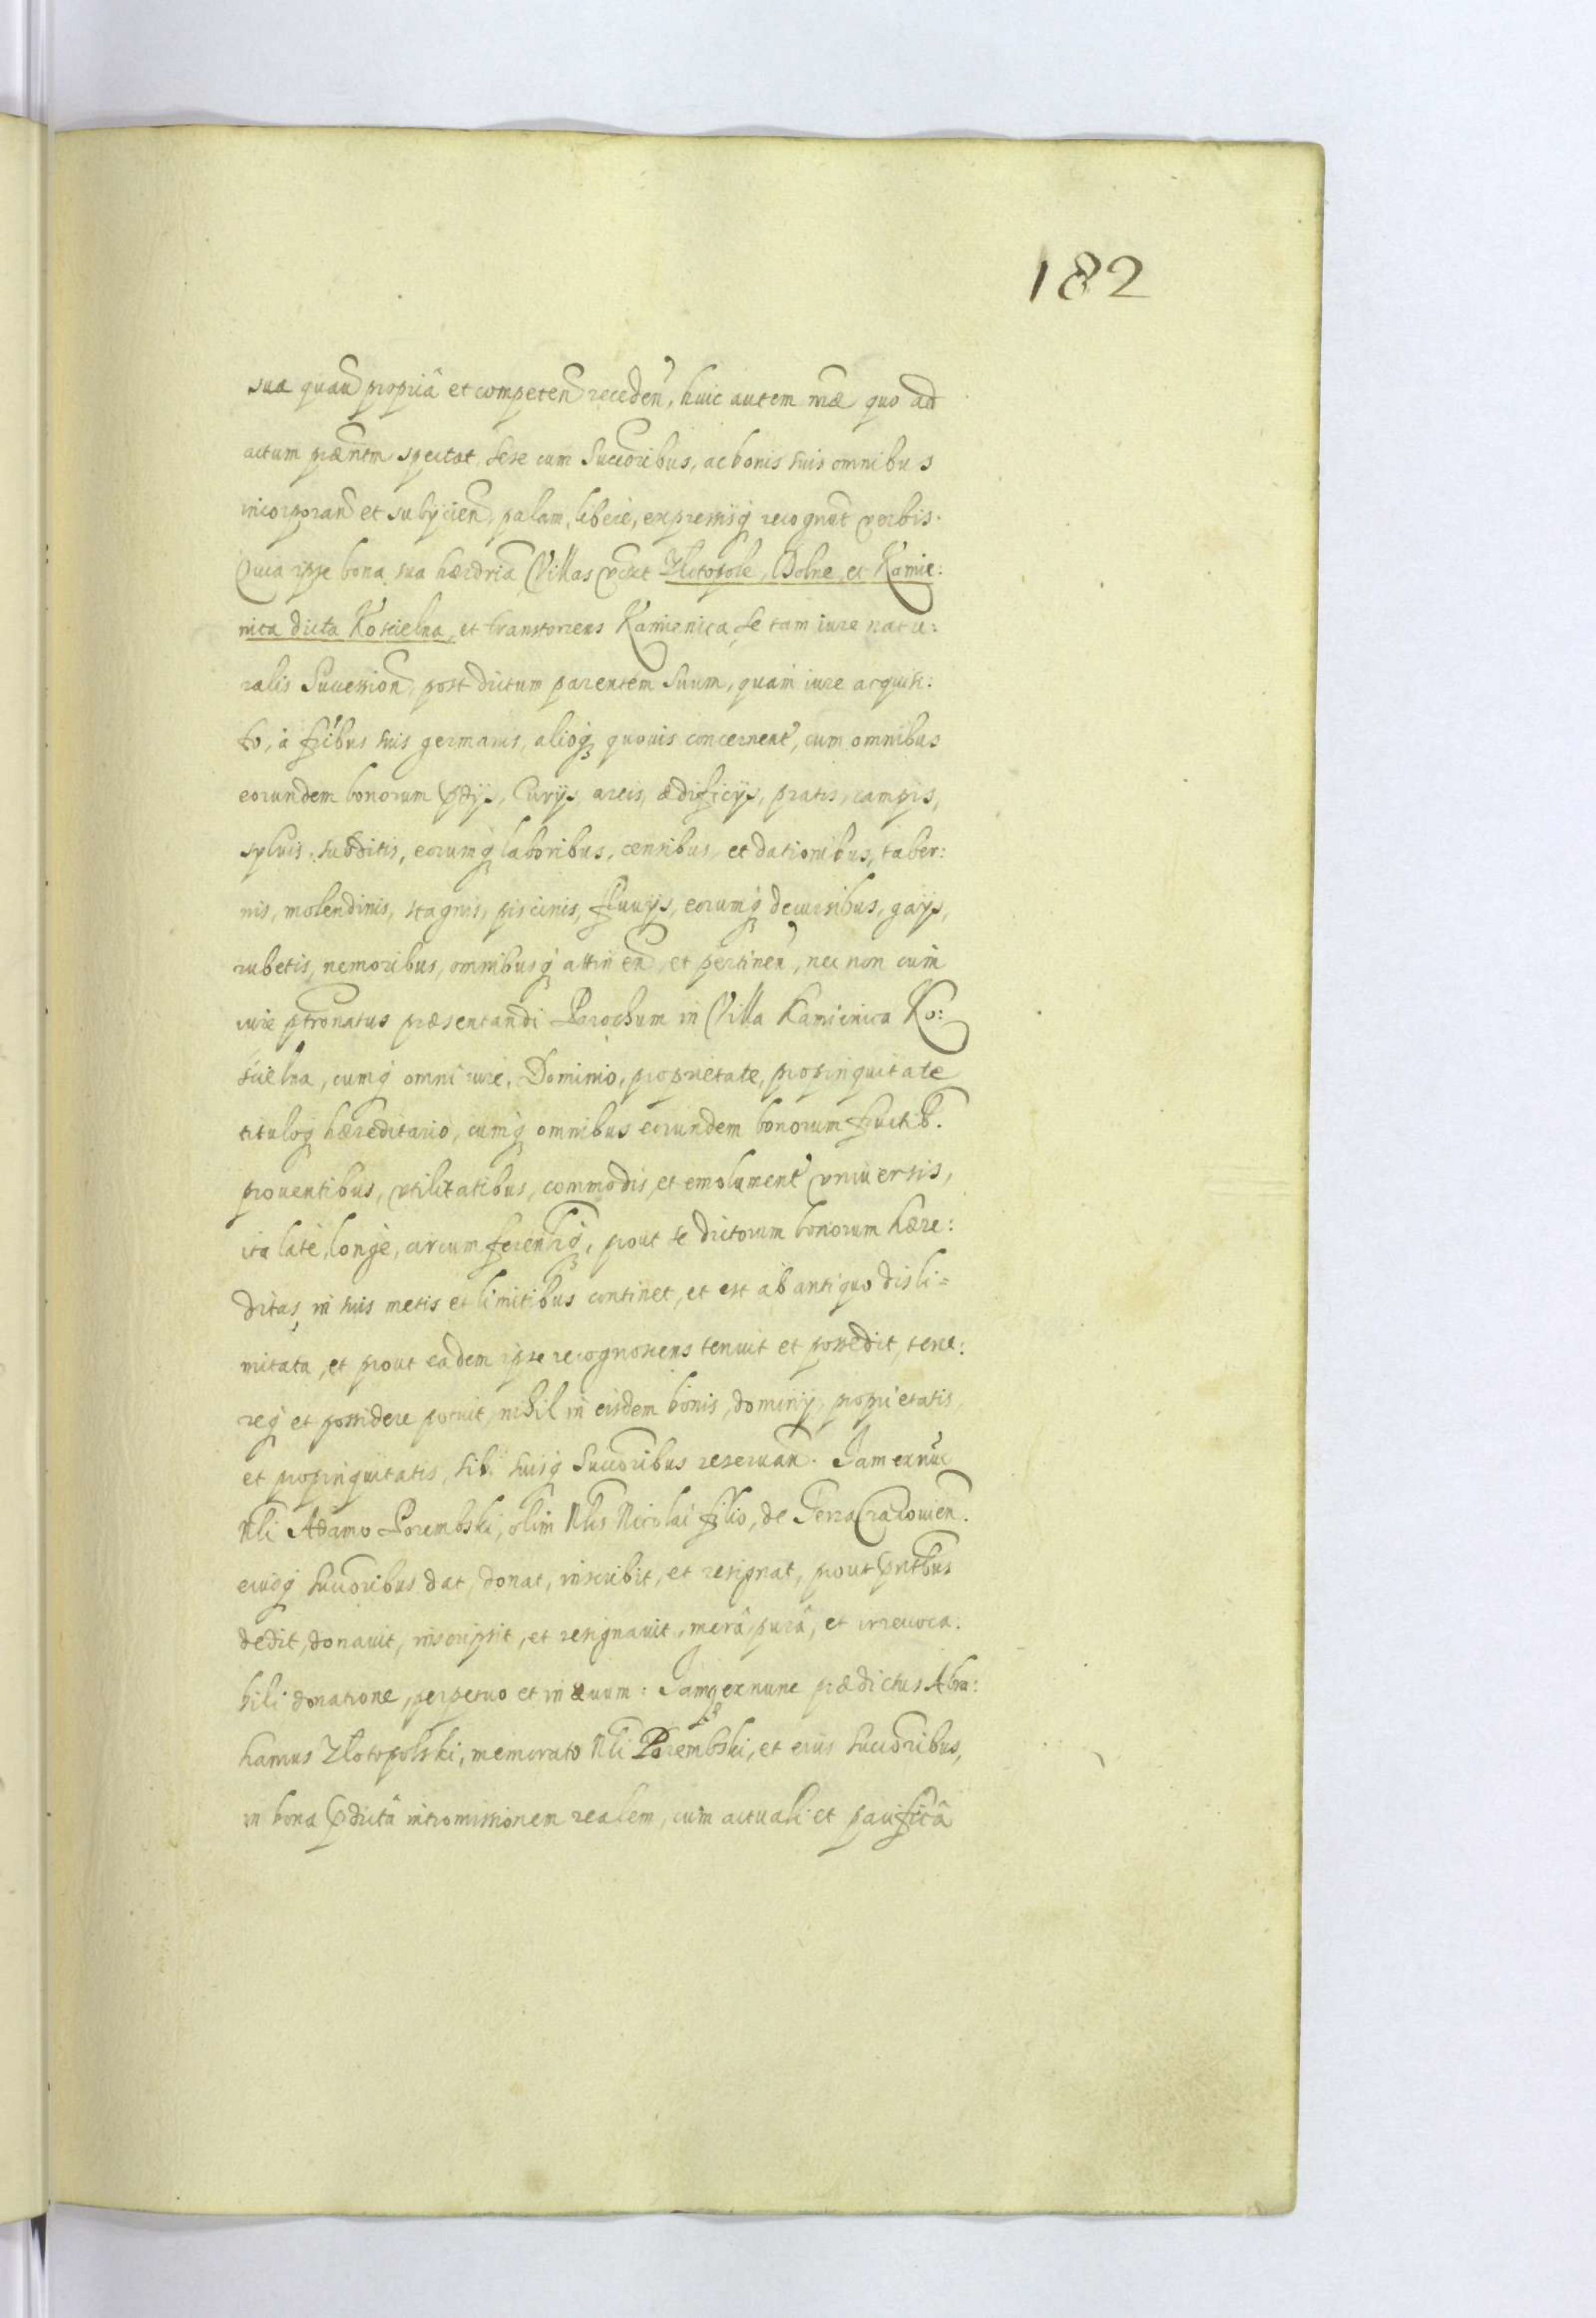 182
sua quavis propriâ et competen receden, huic autem næ quo ad
actum præntm spectat sese cum Succoribus, ac bonis suis omnibus
incorporan et subycien, palam, liberè, expressisq recognvit verbis.
Quia ipse bona sua hærdria Villas videt Zlotopole, Dolne, et Kamie:
nica dicta Kościelna, et transtoriens Kamienica, se tam iure natu:
ralis Succession post dictum parentem suum, quam iure acquisi:
to, à fribus suis germanis, alioq quouis concernent, cum omnibus
eorundem bonorum pdijs, Curijs, areis, ædificijs, pratis, campis,
syluis, subditis, eorumq laboribus, censibus, et dationibus, taber:
nis, molendinis, stagnis, piscinis, fluuijs, eorumq decursibus, gaijs,
rubetis, nemoribus, omnibusq attinen, et pertinen, nec non cum
iure ptronatus præsentandi Parochum in Villa Kamienica Ko:
scielna, cumq omni iure, Dominio, proprietate, propinquitate
tituloq hæreditario, cumq omnibus eorundem bonorum fructib.
prouentibus, vtilitatibus, commodis, et emolument vniuersis,
ita latè, longè, circumferentiq, prout se dictorum bonorum hære:
ditas, in suis metis et limitibus continet, et est ab antiquo disli=
mitata, et prout eadem ipse recognoscens tenuit et possedit, tene:
req et possidere potuit, nihil in eisdem bonis, dominij, proprietatis
et propinquitatis, sibi suisq Succoribus reseruan. Jam exnuc
Nli Adamo Porembski, olim Nlis Nicolai filio, de Terra Cracouien.
eiusq succoribus dat, donat, inscribit, et resignat, prout pntbus
dedit, donauit, inscripsit, et resignauit, merâ, purâ, et irreuoca:
bili donatione, perpetuo et in æuum: Jamq exnunc prædictus Abra:
hamus Zlotopolski, memorato Nli Porembski, et eius succoribus,
in bona pdicta intromissionem realem, cum actuali et pacificâ